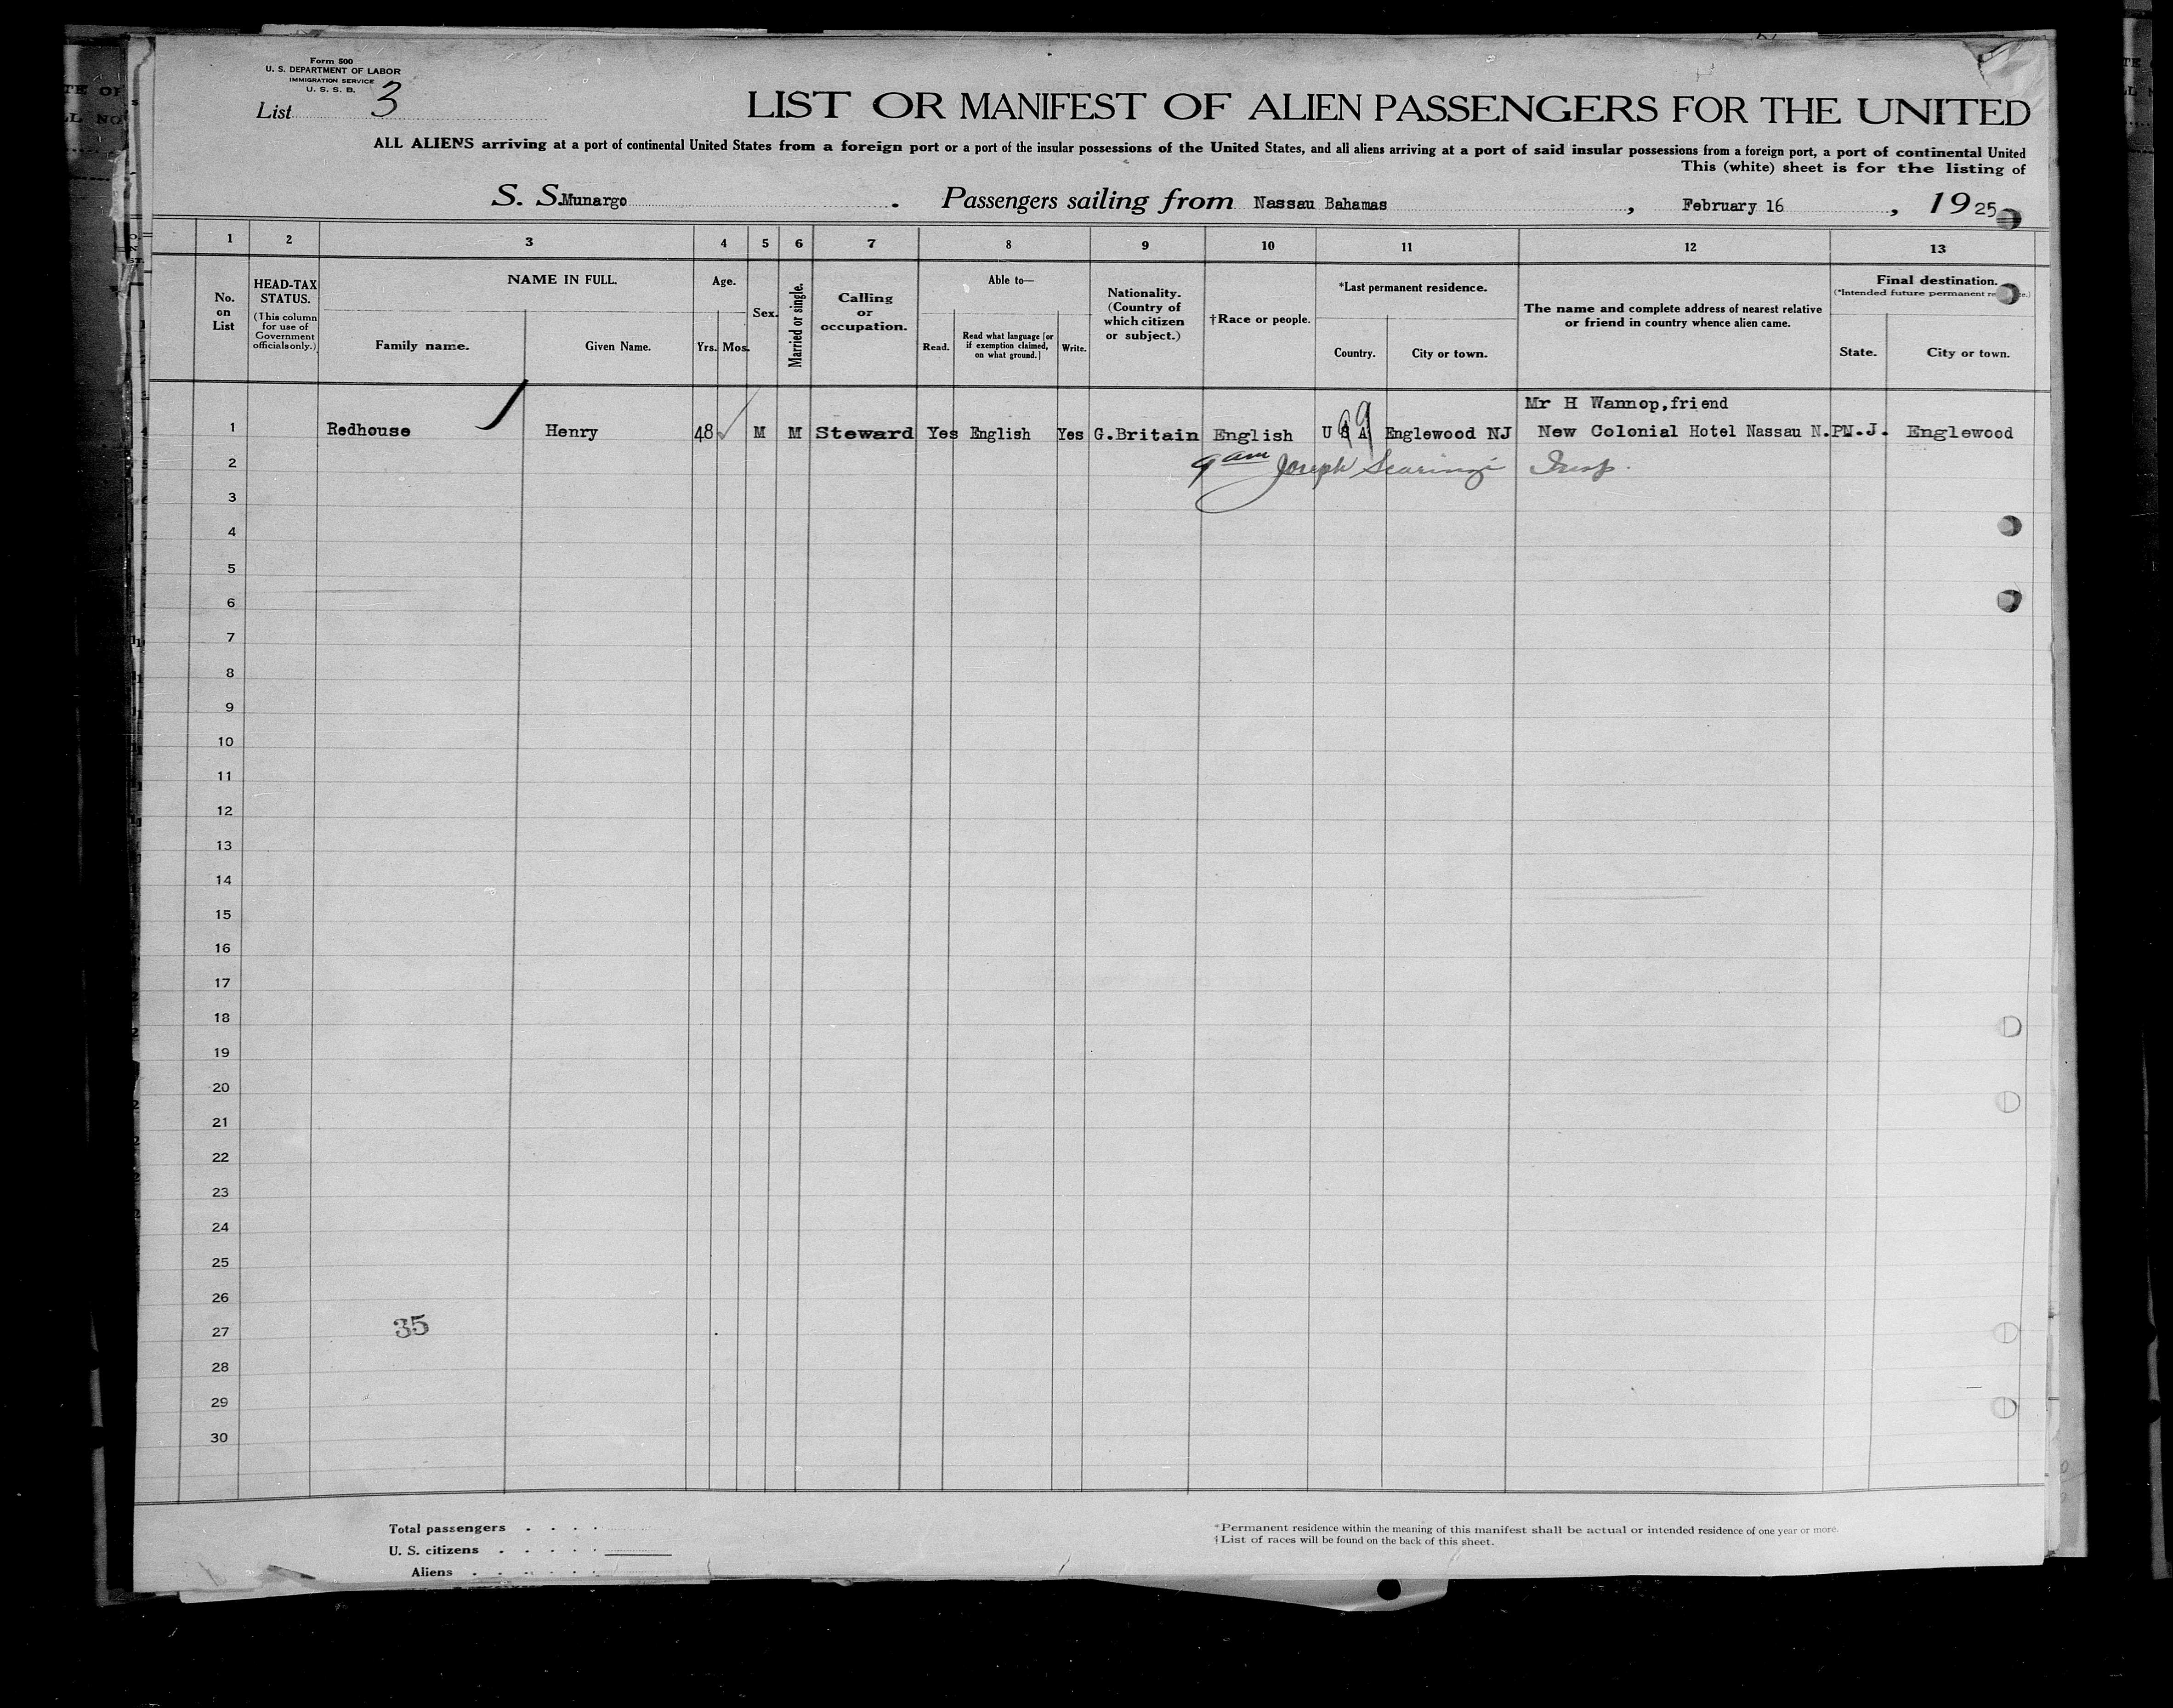 Form 500
U. S. DEPARTMENT OF LABOR
IMMIGRATION SERVICE
U. S. S. B.
List 3
LIST OR MANIFEST OF ALIEN PASSENGERS FOR THE UNITED
ALL ALIENS arriving at a port of continental United States from a foreign port or a port of the insular possessions of the United States, and all aliens arriving at a port of said insular possessions from a foreign port, a port of continental United
This (white) sheet is for the listing of
S. S. Munargo . Passengers sailing from Nassau Bahamas , February 16 , 1925
1 2 3 4 5 6 7 8 9 10 11 12 13
No. on List
HEAD-TAX STATUS.
(This column for use of Government officials only.)
NAME IN FULL.
Family name. Given Name.
Age.
Yrs. Mos.
Sex.
Married or single.
Calling or occupation.
Able to—
Read. Read what language [or if exemption claimed, on what ground.] Write.
Nationality. (Country of which citizen or subject.)
†Race or people.
*Last permanent residence.
Country. City or town.
The name and complete address of nearest relative or friend in country whence alien came.
Final destination.
(*Intended future permanent
State. City or town.
Mr H Wannop,friend
1 Redhouse Henry 48 M M Steward Yes English Yes G.Britain English U S A Englewood NJ New Colonial Hotel Nassau N.P N.J. Englewood
2 9 am Joseph Scaringi Insp.
3
4
5
6
7
8
9
10
11
12
13
14
15
16
17
18
19
20
21
22
23
24
25
26
27 35
28
29
30
Total passengers . . . .
U. S. citizens . . . . .
Aliens . . . . . .
*Permanent residence within the meaning of this manifest shall be actual or intended residence of one year or more.
†List of races will be found on the back of this sheet.